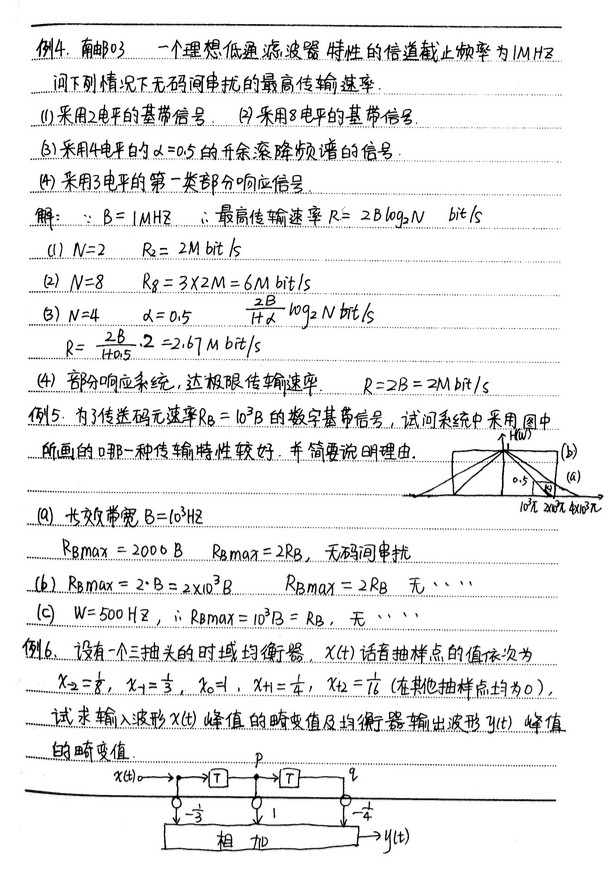 例4. 南邮03 一个理想低通滤波器特性的信道截止频率为1MHZ
问下列情况下无码间串扰的最高传输速率.
(1)采用2电平的基带信号. (2)采用8电平的基带信号.
(3)采用4电平的α=0.5的升余滚降频谱的信号.
(4)采用3电平的第一类部分响应信号.
解: ∵ B=1MHZ ∴最高传输速率 R= 2Blog₂N bit/s
(1) N=2 R₂= 2M bit/s
(2) N=8 R₈= 3×2M=6M bit/s
(3) N=4 α=0.5 2B/(1+α) log₂N bit/s
R= 2B/(1+0.5) ·2 =2.67M bit/s
(4) 部分响应系统, 达极限传输速率. R=2B=2M bit/s
例5. 为了传送码元速率RB=10³B的数字基带信号, 试问系统中采用图中
所画的哪一种传输特性较好. 并简要说明理由.
H(ω)
(b)
(a)
0.5
(c)
10³π 2×10³π 4×10³π
(a) 带宽B=10³HZ
RBmax = 2000B RBmax=2RB, 无码间串扰
(b) RBmax = 2·B=2×10³B RBmax=2RB 无 ····
(c) W=500HZ, ∴RBmax=10³B=RB, 无 ····
例6. 设有一个三抽头的时域均衡器. x(t)话音抽样点的值依次为
x₋₂=1/8, x₋₁=1/3, x₀=1, x₊₁=1/4, x₊₂=1/16 (在其他抽样点均为0),
试求输入波形x(t)峰值的畸变值及均衡器输出波形y(t)峰值
的畸变值.
x(t) T P T q
-1/3 1 -1/4
相加 y(t)